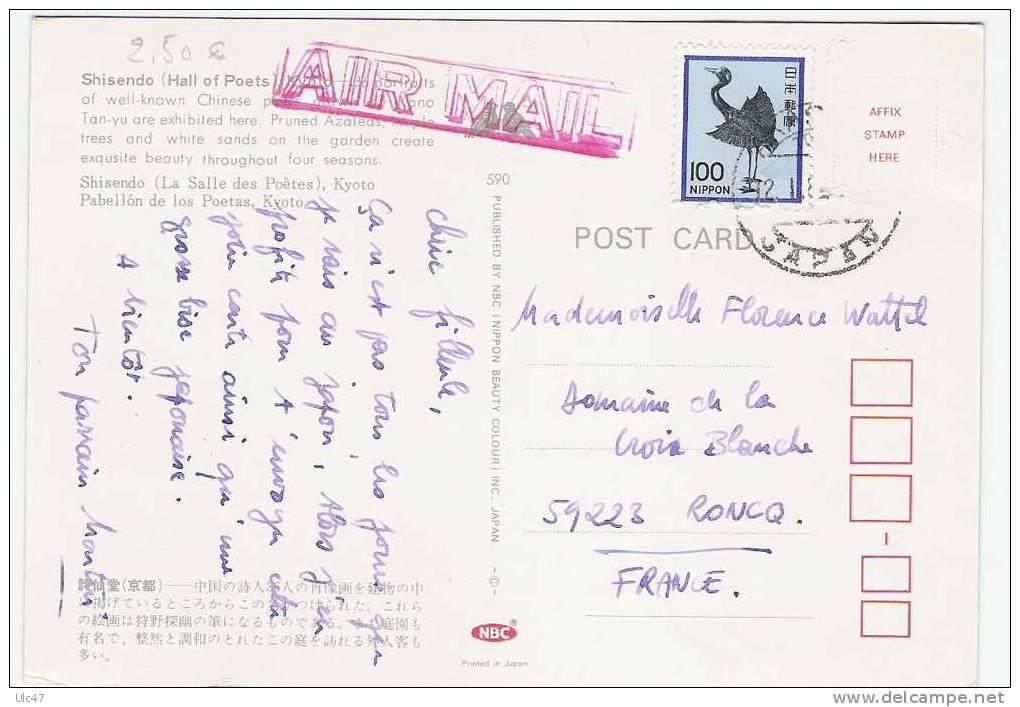 2,50 €
Shisendo (Hall of Poets), Kyoto portraits
of well-known Chinese Kano
Tan-yu are exhibited here. Pruned Azaleas,
trees and white sands on the garden create
exqusite beauty throughout four seasons.
Shisendo (La Salle des Poètes), Kyoto
Pabellón de los Poetas, Kyoto
AIR MAIL
日本郵便
100
NIPPON
JAPAN
AFFIX
STAMP
HERE
590
POST CARD
PUBLISHED BY NBC (NIPPON BEAUTY COLOUR) INC. JAPAN -©-
Chère filleule,
Ça n'est pas tous les jours que
je vais au japon, Alors j'en
profite pour t'envoyer cette
jolie carte ainsi qu'une
grosse bise japonaise.
A bientôt.
Ton parrain
Mademoiselle Florence Wattel
Domaine de la
Croix Blanche
59223 RONCQ.
FRANCE.
詩仙堂(京都)――中国の詩人 人の肖像画を建物の中
に掲げているところからこの つけられた。これら
の絵画は狩野探幽の筆になるものである。 庭園も
有名で、整然と調和のとれたこの庭を訪れる外人客も
多い。
NBC
Printed in Japan
Ulc47
delcampe.net